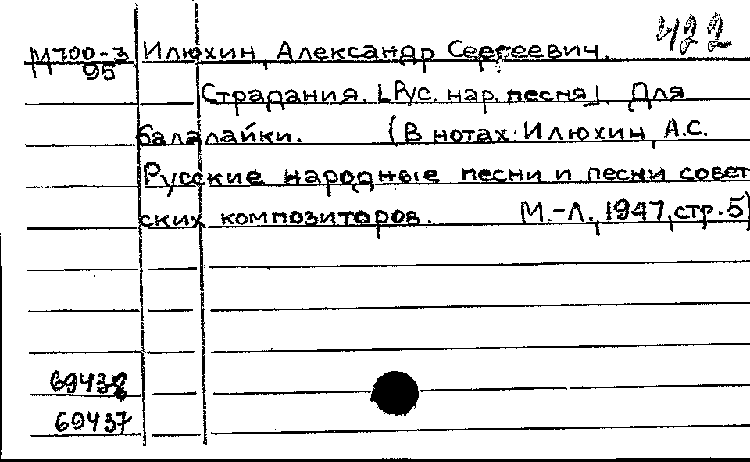 422
М700-3 Илюхин, Александр Сергеевич.
95
Страдания. [Рус. нар. песня]. Для
балалайки. (В нотах: Илюхин, А.С.
Русские народные песни и песни совет
ских композиторов. М.-Л., 1947, стр. 5)
69438
69437